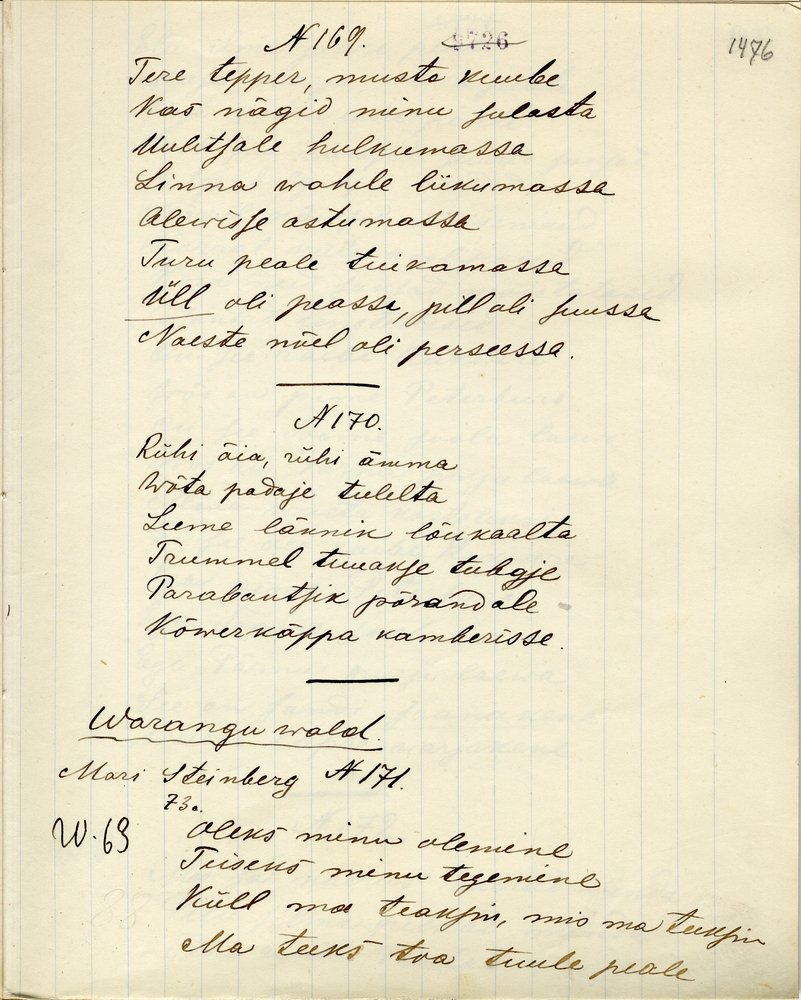 N 169. 9726 1476
Tere tepper, musta kuube
Kas nägid minu sulasta
Uulitsale hulkumassa
Linna wahele liikumassa
Alewisse astumassa
Turu peale tuikamasse
Üll oli peassa, pill oli suussa
Naeste nöel oli perseessa.
N 170.
Rühi äia, rühi ämma
Wõta padaje tulelta
Leeme lännik lõukaalta
Trummel tuuakse tubaje
Parabantsik põrandale
Kõwerkäppa kamberisse.
Warangu wald.
Mari Steinberg N 171.
73 a.
W. 63 Oleks minu olemine
Teiseks minu tegemine
Küll ma teaksin, mis ma teeksin
Ma teeks toa tuule peale